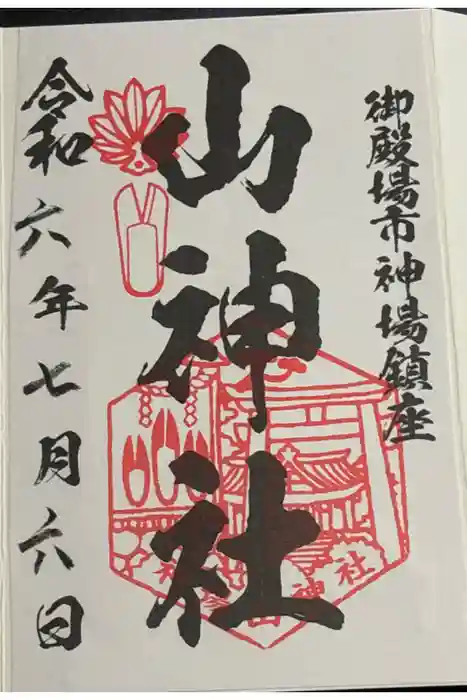 御殿場市神場鎮座
山神社
令和六年七月六日